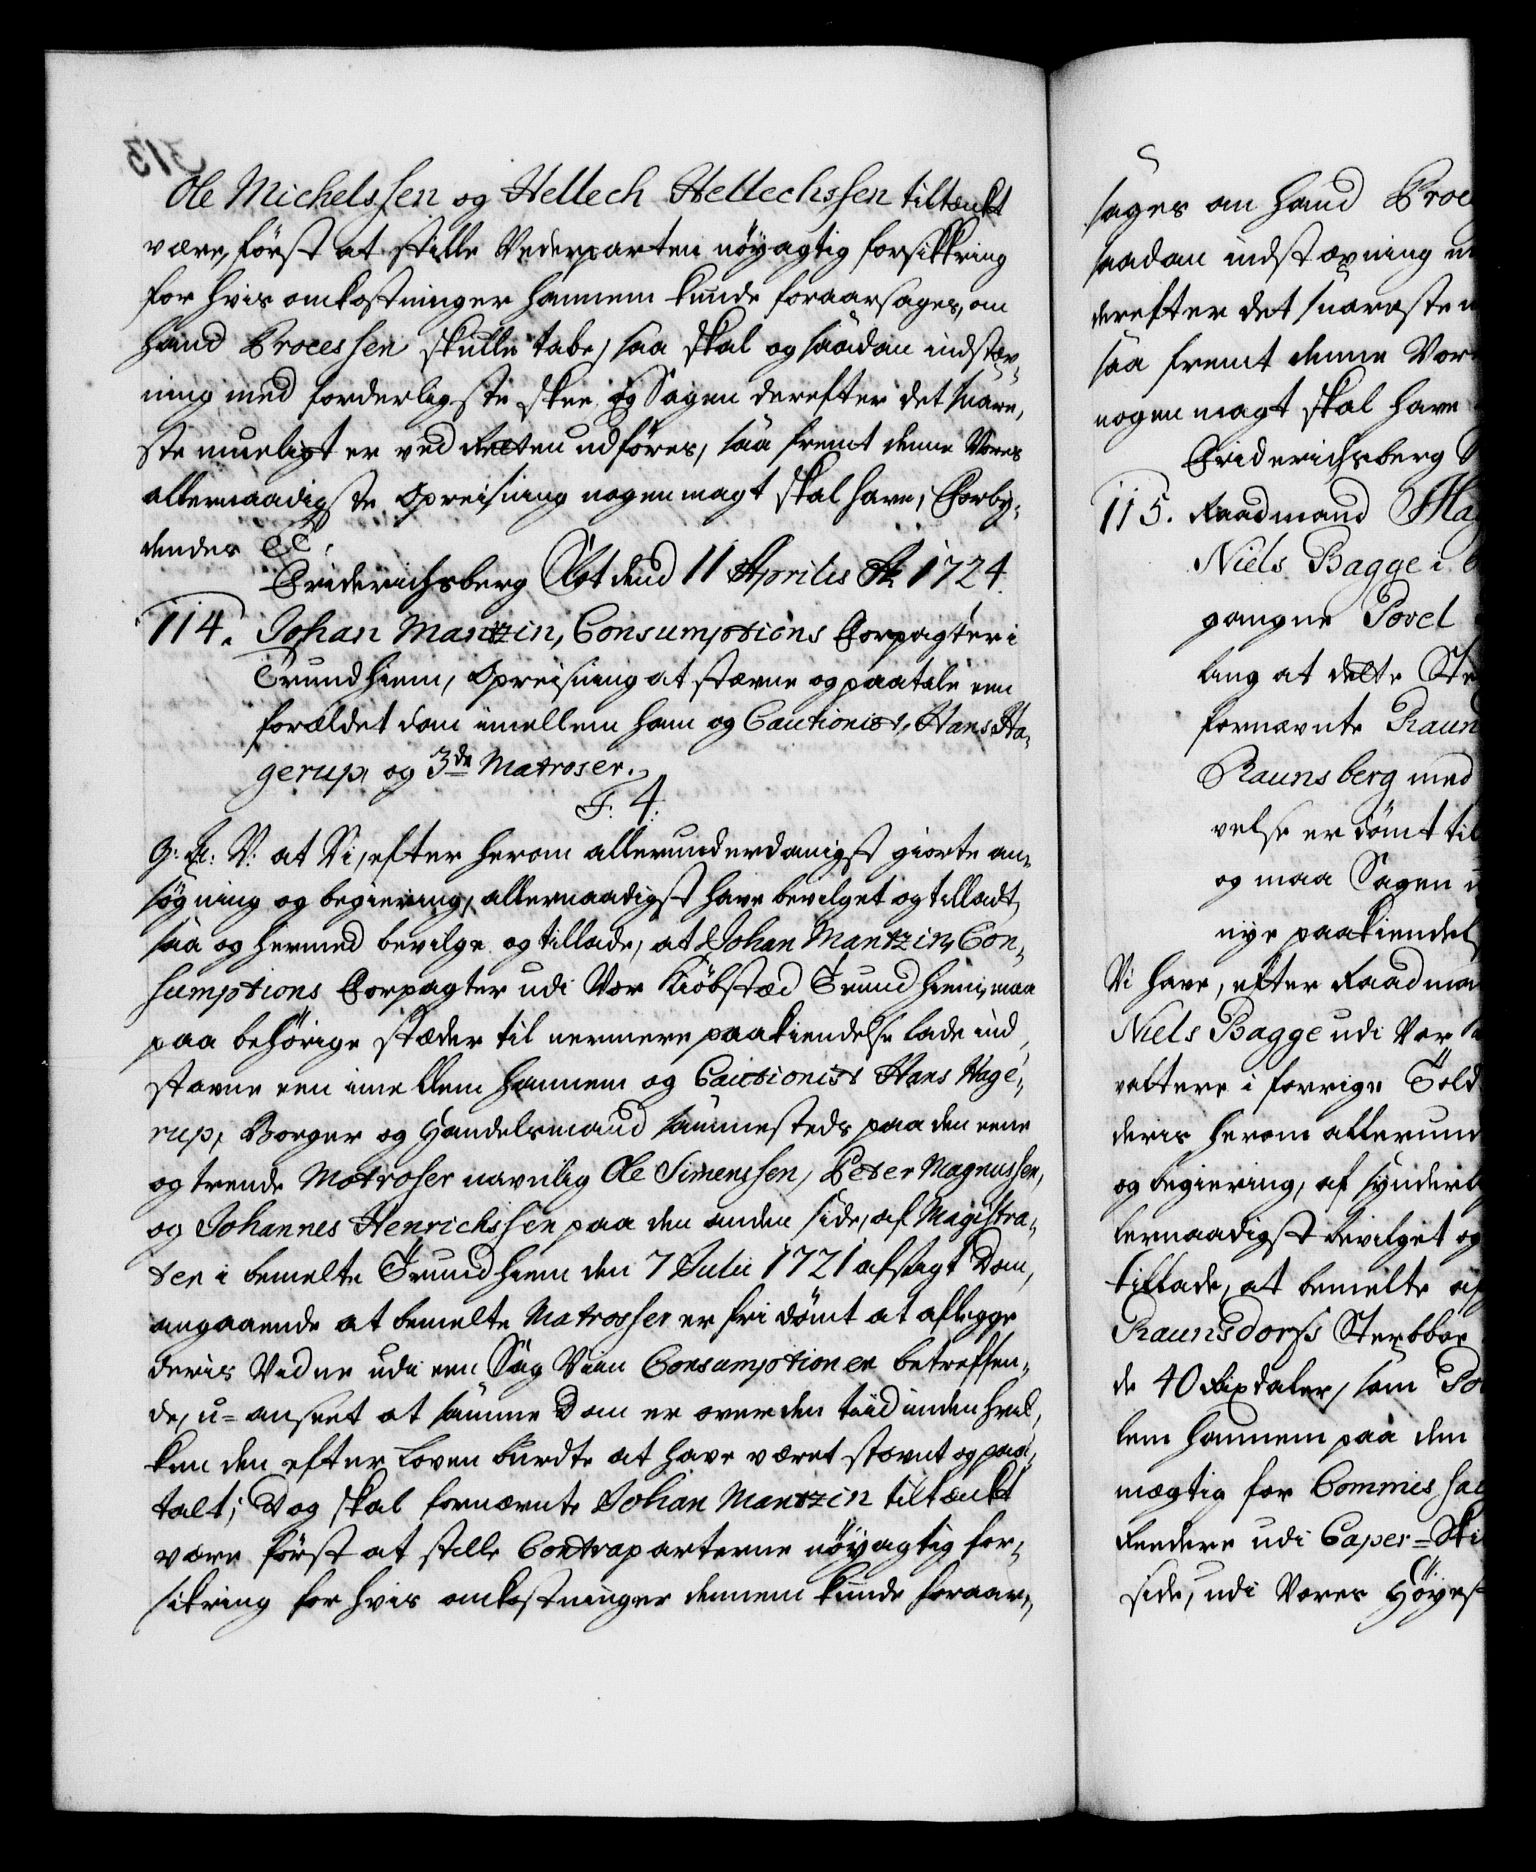 Ole Michelssen og Hellech Hellechssen tiltænkt
være, først at stille Vederparten nöyagtig forsikkring
for hvis omkostninger hannem kunde foraarsages, om
hand Processen skulle tabe, saa skal og saadan indstæv-
ning med forderligste skee, og Sagen derefter det snare,
ste mueligt er ved Retten udföres, saa fremt denne Vores
allernaadigste Opreisning nogen magt skal have, Forby-
dendes &c:
Friderichsberg Slot dend 11 Aprilis Ao 1724.
114. Johan Mantzin, Consumptions Forpagter i
Trundhiem, Opreisning at stævne og paatale een
forældet dom imellem ham og Cautionist, Hans Ha-
gerup, og 3de Matroser.
F: 4.
G: A: V: at Vi, efter herom allerunderdanigst giorte an-
søgning og begiering, allernaadigst have bevilget og tilladt,
saa og hermed bevilge og tillade, at Johan Mantzin, Con-
sumptions Forpagter udi Vor Kiöbstæd Trundhiem, maa
paa behörige stæder til nermere paakiendelse lade ind,
stævne een imellem hannem og Cautionist Hans Hage-
rup, Borger og Handelsmand sammesteds paa den eene
og trende Matroser navnlig Ole Simenssen, Peter Magnussen,
og Johannes Henrichssen paa den anden side, af Magistra-
ten i bemelte Trundhiem den 7 Julii 1721 afsagt Dom,
angaaende at bemelte Matrosser er fri dömt at aflegge
deris Vidne udi een Sag Viin Consumptionen betreffen-
de, u-anseet at samme Dom er over den tiid inden hvil-
ken den efter Loven burdte at have været stævnt og paa-
talt; Dog skal fornævnte Johan Mantzin tiltænkt
være først at stille Contraparterne nöyagtig for-
sikring for hvis omkostninger dennem kunde foraar-
sages om hand Proc
saadan indstævning
derefter det snareste
saa fremt denne Vor
nogen magt skal have
Friderichsberg
115. Raadmand Mag
Niels Bagge i
gangne Povel
ling at dette Ste
fornævnte Raun
Raunsberg med
velse er dömt til
og maa Sagen
nye paakiendel
Vi have, efter Raadma
Niels Bagge udi Vor
valtere i forrige Told
deris herom allerund
og begiering, af synderl
lernaadigst bevilget og
tillade, at bemelte af
Raunsdorfs Sterbboe
de 40 Rixdaler, som Po
lem hannem paa den
mægtig for Commissa
Reedere udi Caper-Ski
side, udi Vores Höyes